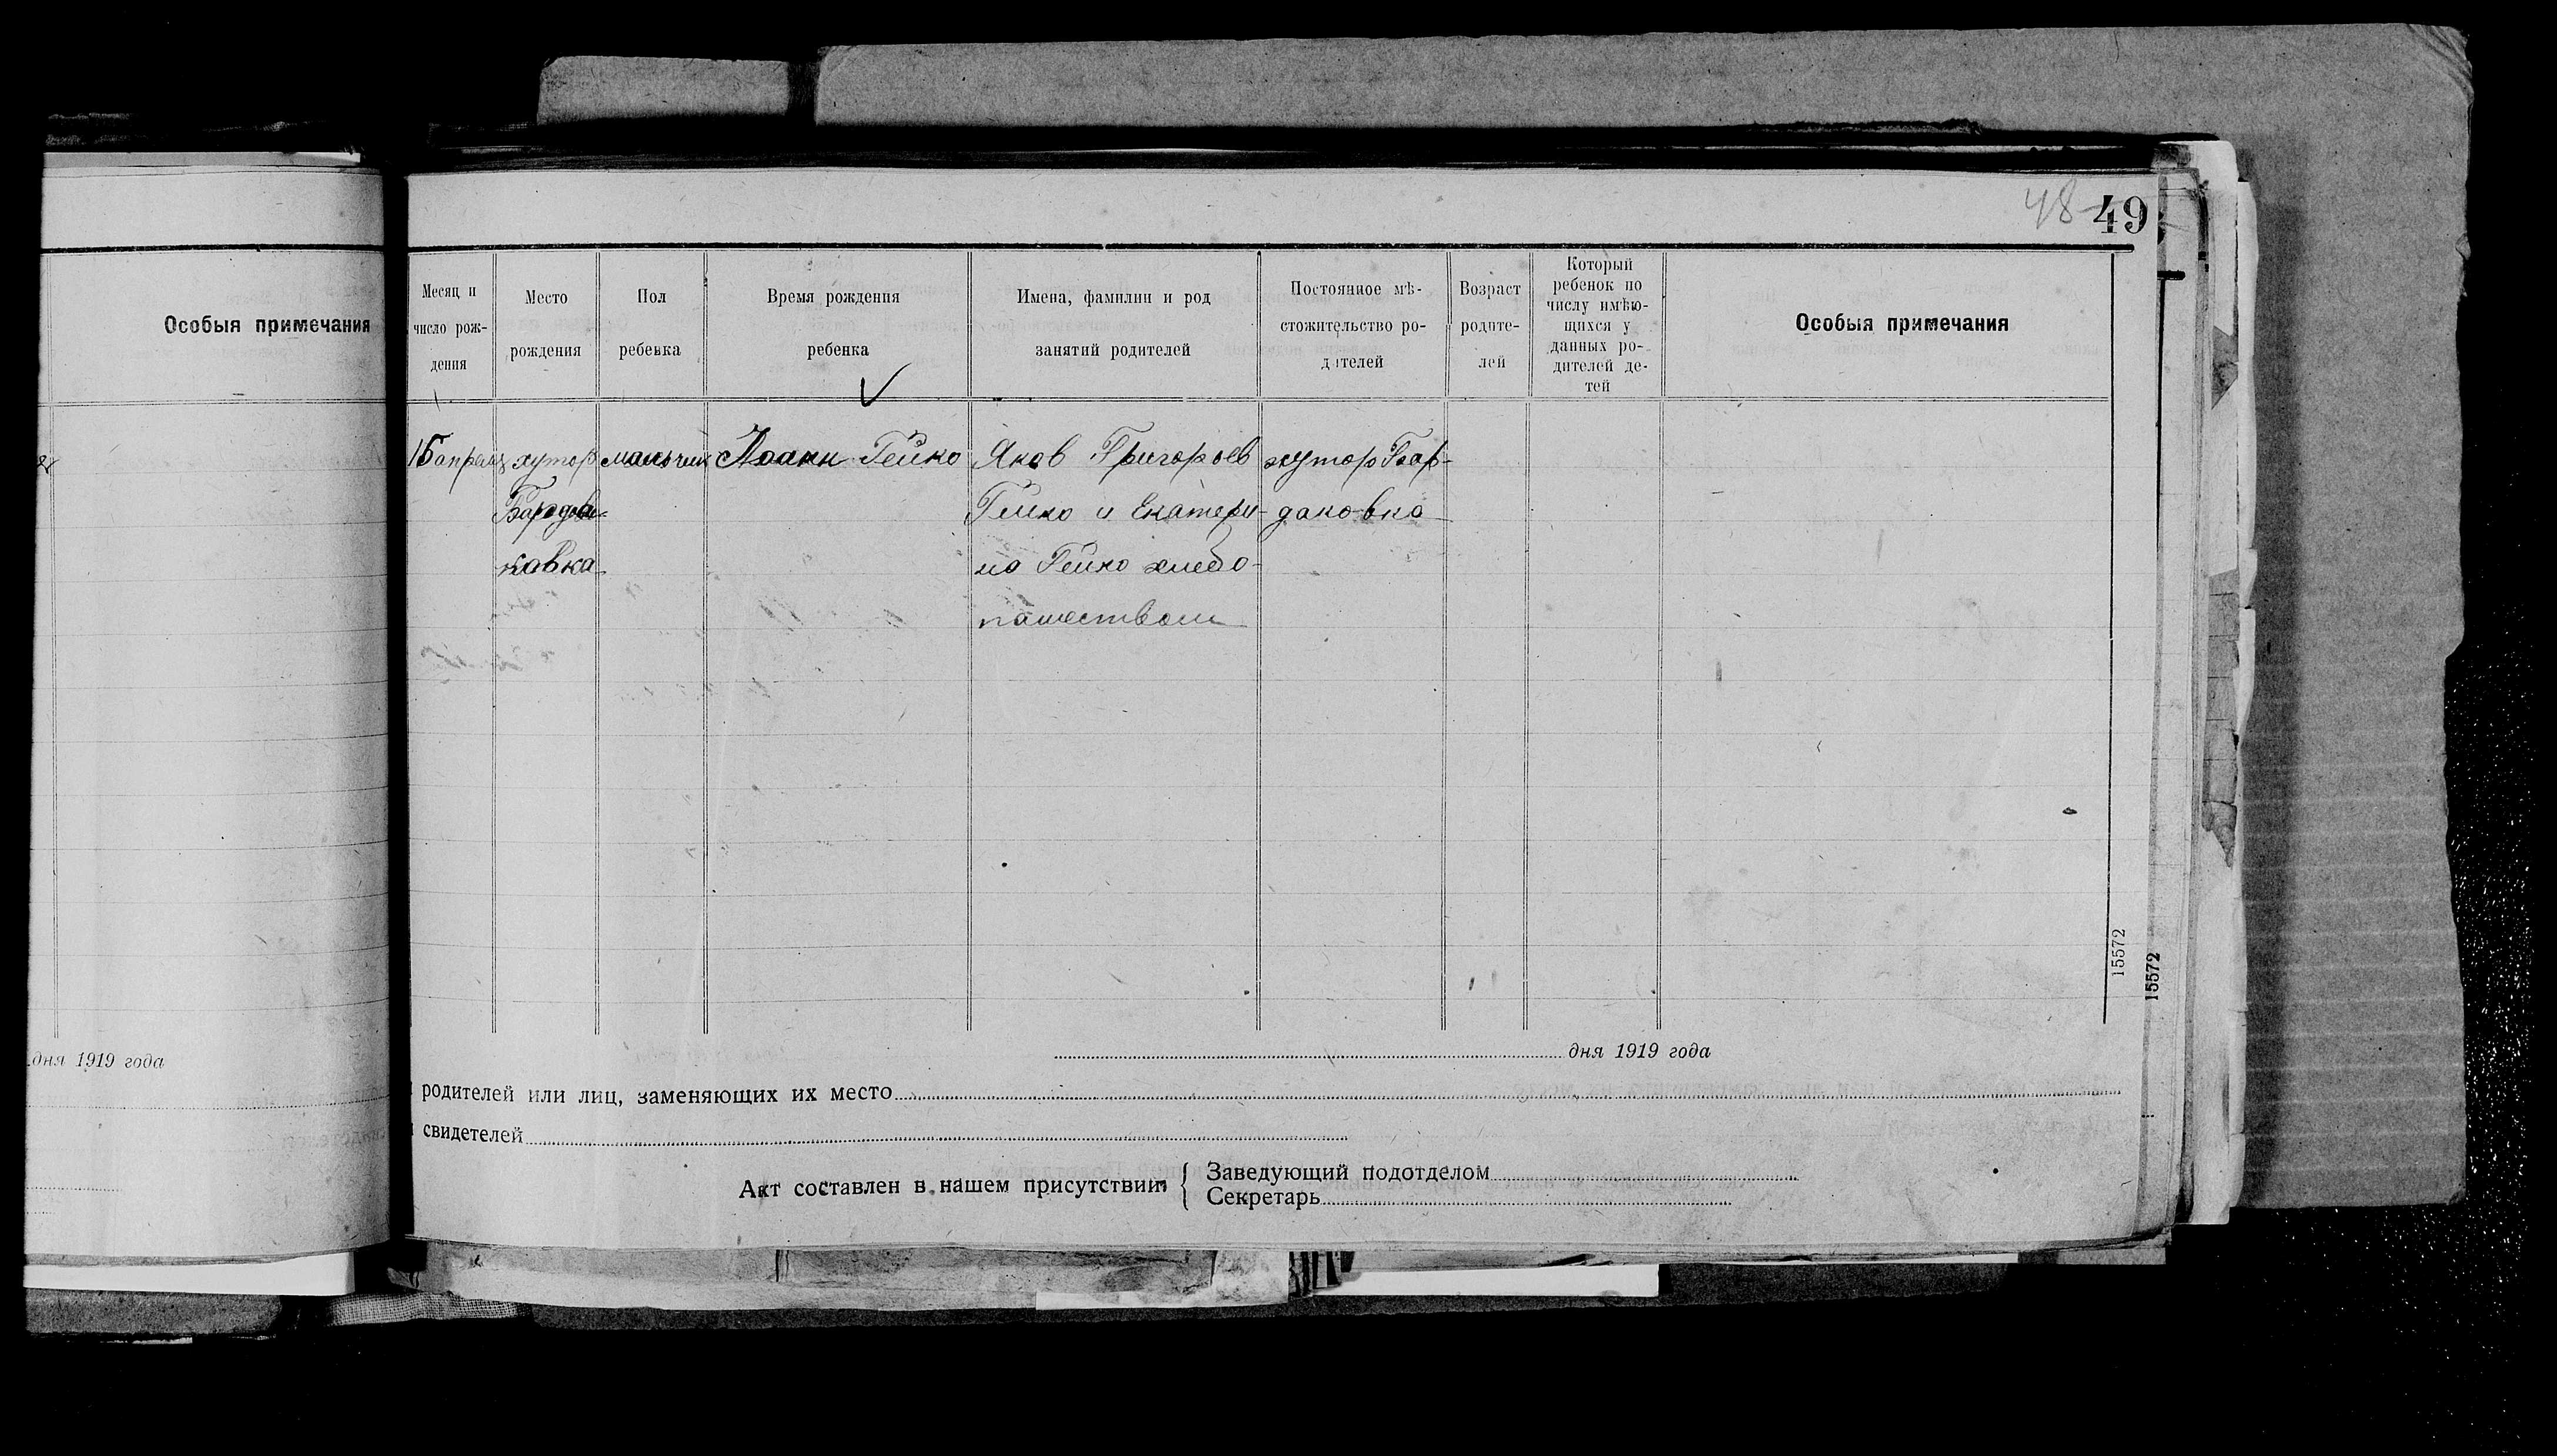 48
49
Особыя примечания
Месяц и
число рож-
дения
Место
рождения
Пол
ребенка
Время рождения
ребенка
Имена, фамилии и род
занятий родителей
Постоянное мѣ-
стожительство ро-
дителей
Возраст
родите-
лей
Который
ребенок по
числу имѣю-
щихся у
данных ро-
дителей де-
тей
Особыя примечания
15 апреля
хутор
кавка
мальчик
Иоанн Гейко
Яков Григорьев
Гейко и Екатери-
на Гейко хлебо-
пашеством
хутор Бар-
даковка
15572
15572
дня 1919 года
дня 1919 года
родителей или лиц, заменяющих их место
свидетелей
Акт составлен в нашем присутствии
Заведующий подотделом
Секретарь